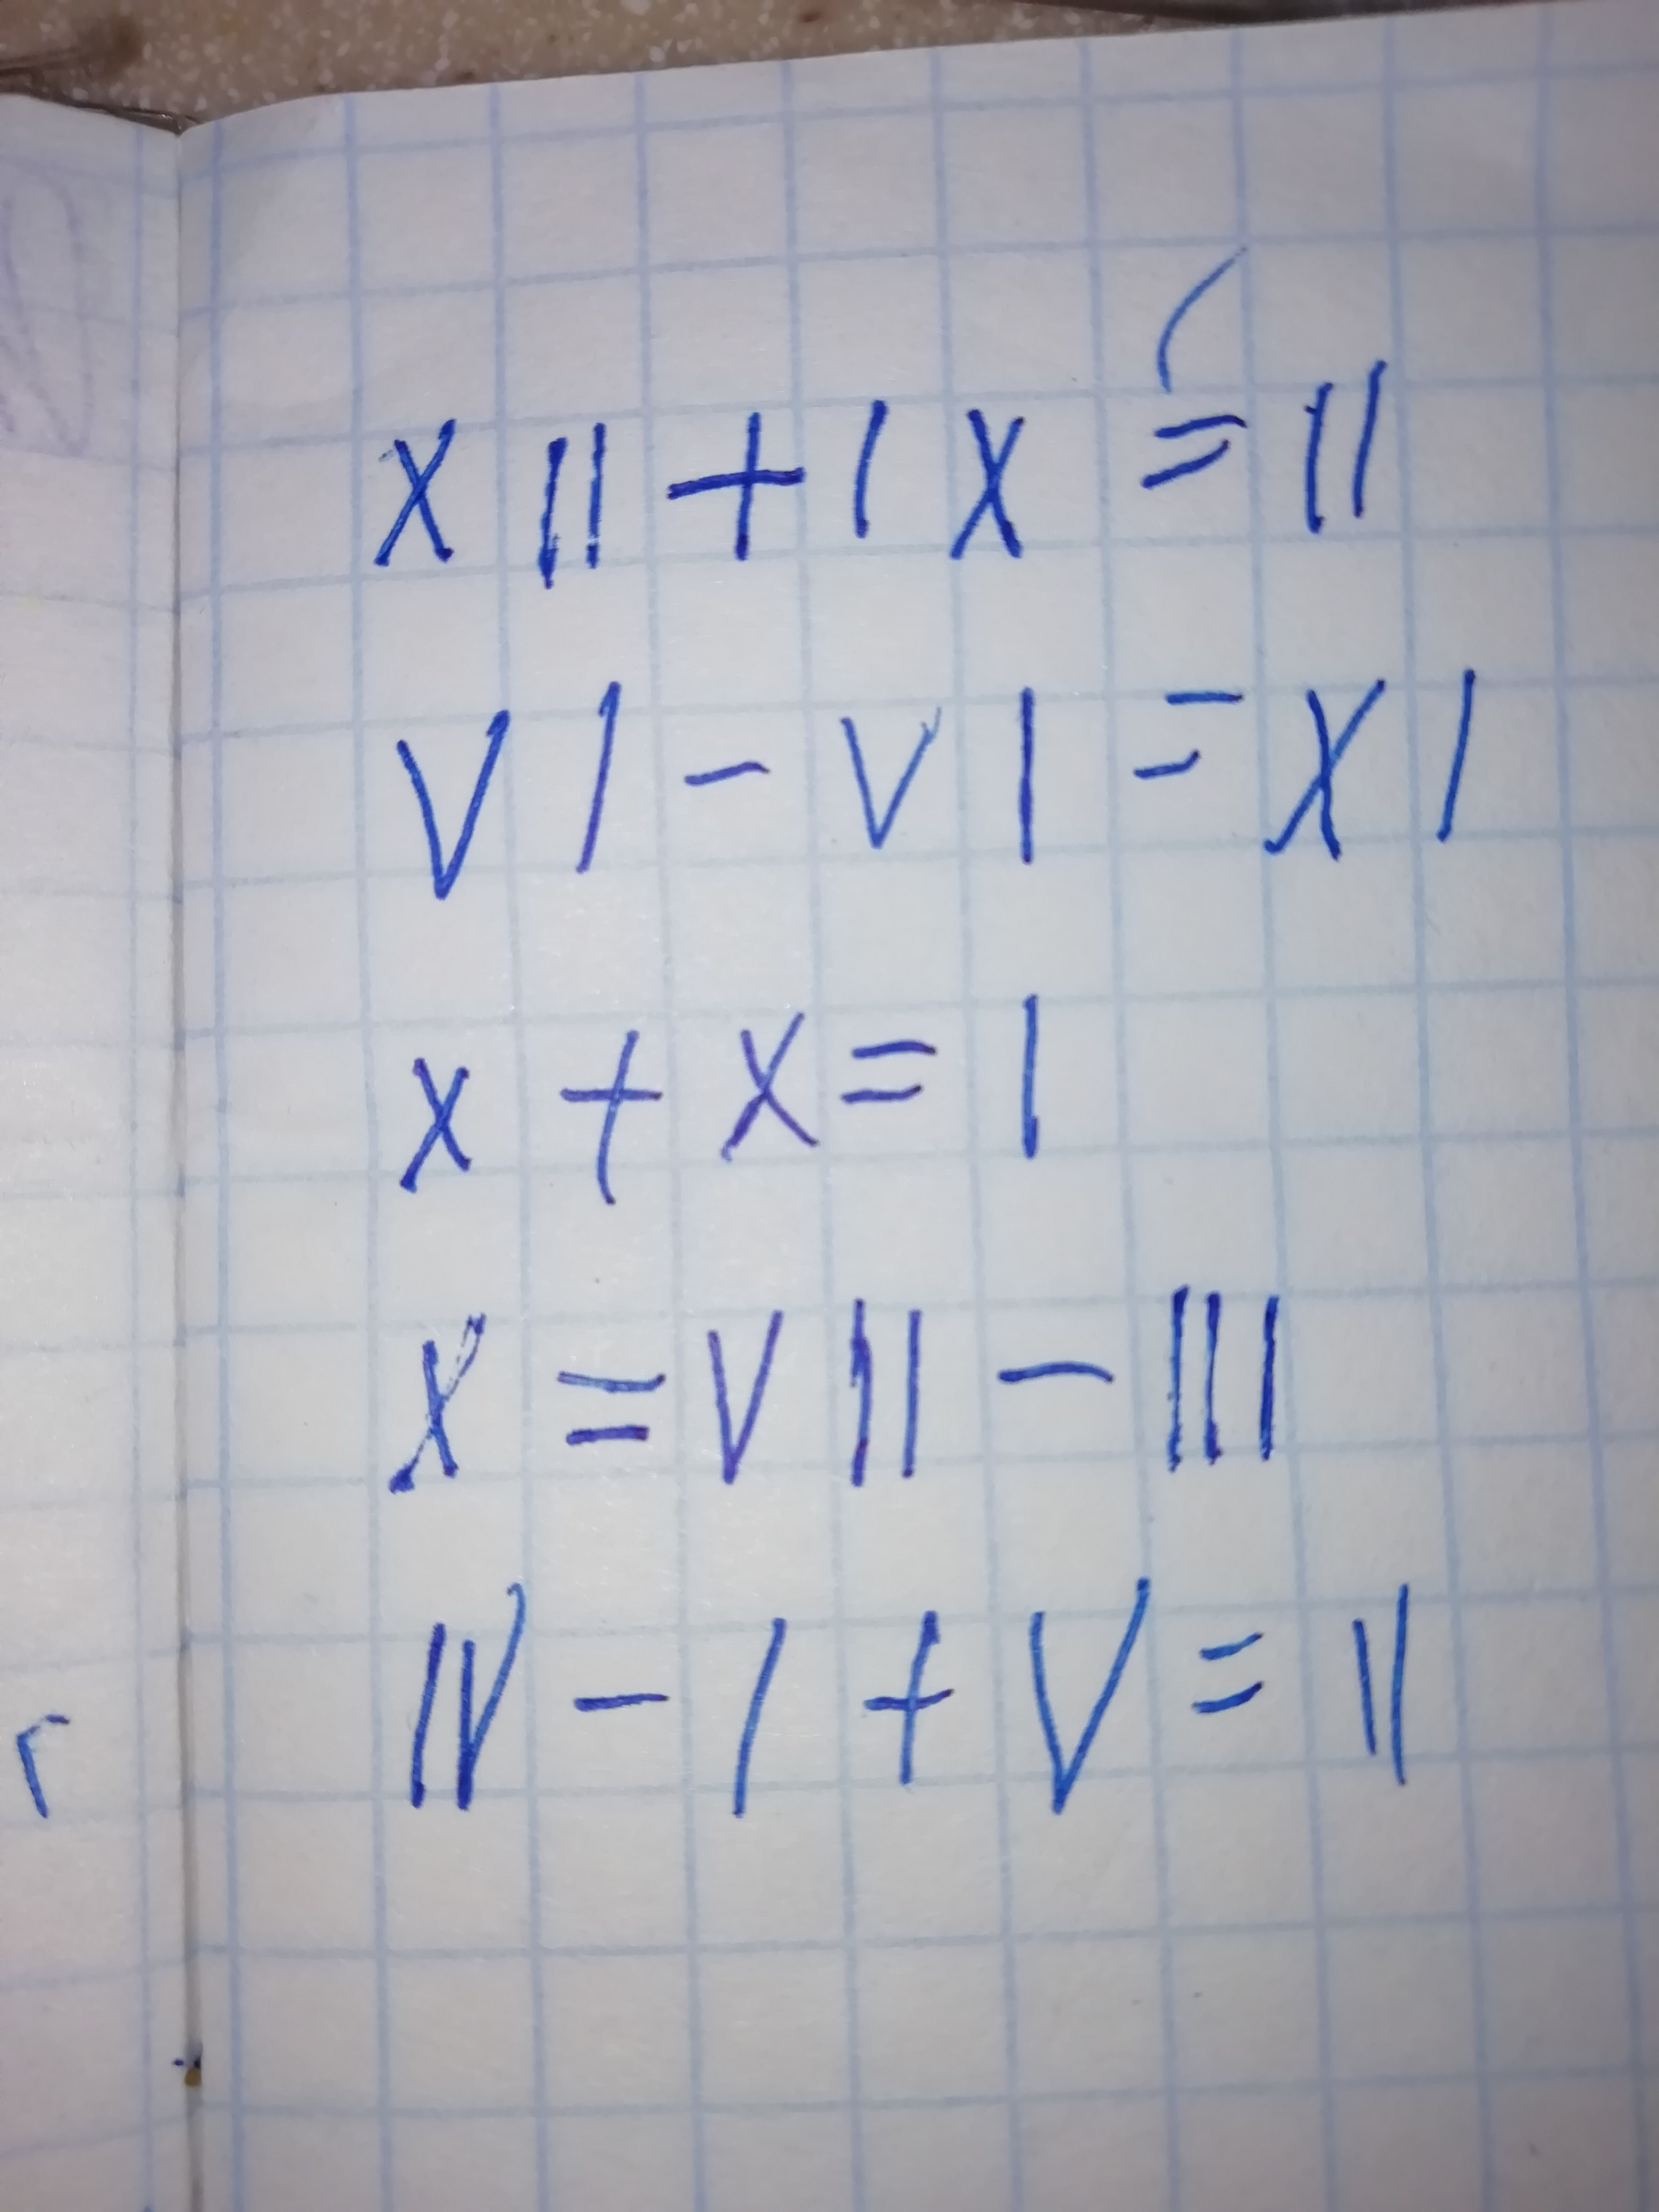 XII + IX = II
VI - VI = XI
X + X = I
X = VII - III
IV - I + V = II